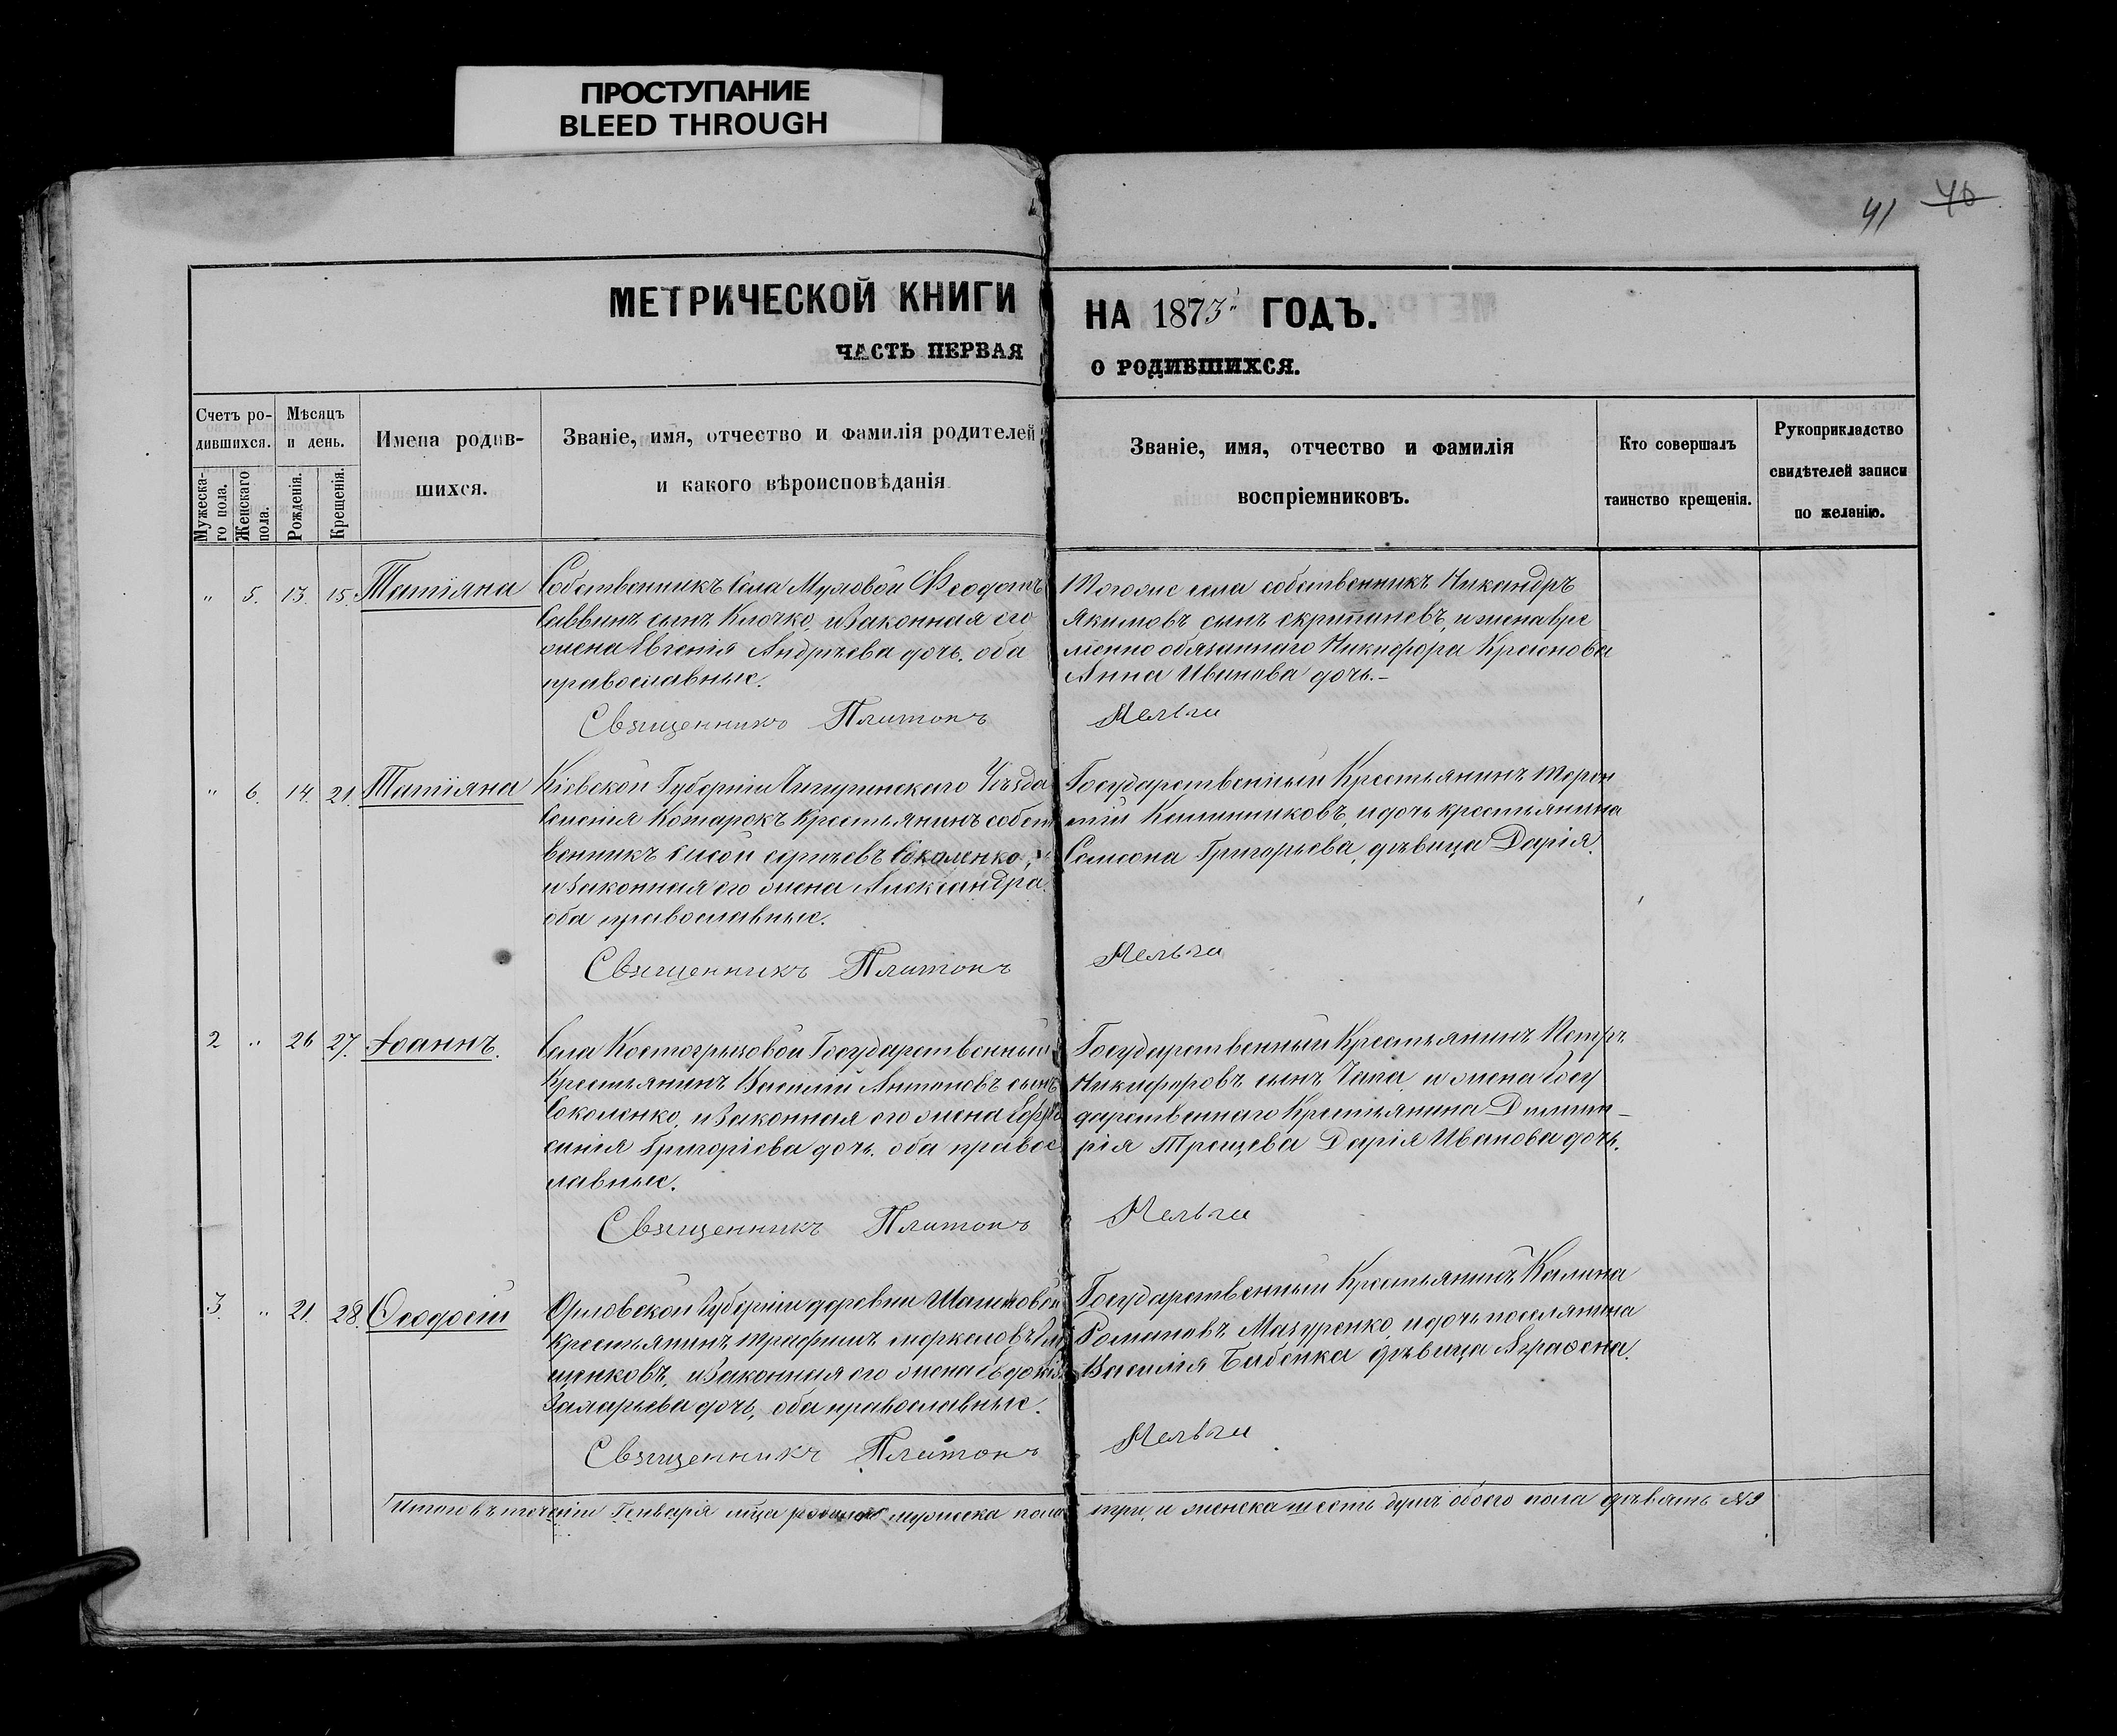 ПРОСТУПАНИЕ
BLEED THROUGH
41 40
МЕТРИЧЕСКОЙ КНИГИ НА 1873 ГОДЪ.
ЧАСТЬ ПЕРВАЯ О РОДИВШИХСЯ.
Счетъ ро-
дившихся.
Мужеска-
го пола.
Женскаго
пола.
Мѣсяцъ
и день.
Рожденія.
Крещенія.
Имена родив-
шихся.
Званіе, имя, отчество и фамилія родителей
и какого вѣроисповѣданія
Званіе, имя, отчество и фамилія
воспріемниковъ.
Кто совершалъ
таинство крещенія.
Рукоприкладство
свидѣтелей записи
по желанію.
" 5. 13. 15. Татіяна
Собственникъ Села Феодотъ
Саввинъ сынъ Клочко, и Законная его
жена Евгенія Андрѣева дочь. оба
православные.
Тогоже села собственникъ Никандръ
Якимовъ сынъ и жена вре
менно обязаннаго Никифора Краснова
Анна Иванова дочь.-
Священникъ Платонъ
" 6. 14. 21. Татіяна
Кіевской Губерніи Чигиринскаго Уѣзда
Крестьянинъ собст
венникъ Соколенко,
и Законная его жена Александра.
оба православные.
Государственный Крестьянинъ Терен
тій и дочь крестьянина
Самсона Григорьева, дѣвица Дарія.
Священникъ Платонъ
2 " 26 27. Іоаннъ.
Села Костогрызовой Государственный
Крестьянинъ Василій Антоновъ сынъ
Соколенко, и Законная его жена Ефро
синія Григоріева дочь. оба правос
лавные.
Государственный Крестьянинъ Петръ
Никифоровъ сынъ и жена Госу
дарственнаго Крестьянина Димит-
рія Трощева Дарія Иванова дочь.
Священникъ Платонъ
3. " 21. 28. Ѳеодосій
Орловской Губерніи деревни
крестьянинъ
щенковъ, и Законная его жена Евдокія
дочь, оба православные.
Государственный Крестьянинъ Калина
Романовъ Мазуренко, и дочь поселянина
Василія Бабенка дѣвица Аграфена.
Священникъ Платонъ
Итого въ теченіи Генваря мца мужеска пола три, и женска шесть душъ обоего пола девять №9